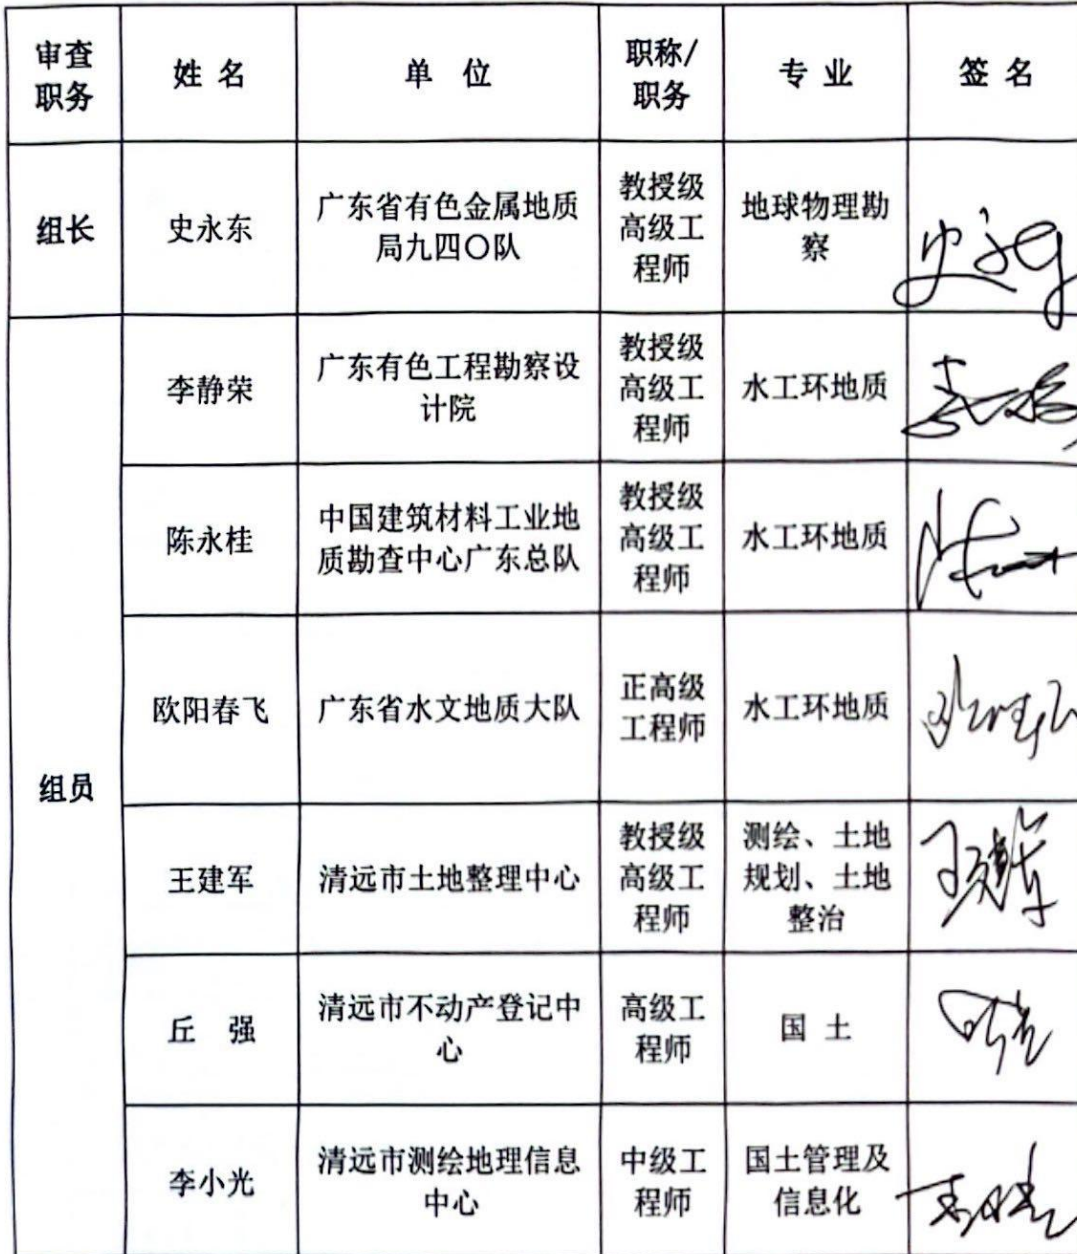 审查
职务
姓 名
单 位
职称/
职务
专 业
签 名
组长
史永东
广东省有色金属地质
局九四〇队
教授级
高级工
程师
地球物理勘
察
组员
李静荣
广东有色工程勘察设
计院
教授级
高级工
程师
水工环地质
陈永桂
中国建筑材料工业地
质勘查中心广东总队
教授级
高级工
程师
水工环地质
欧阳春飞
广东省水文地质大队
正高级
工程师
水工环地质
王建军
清远市土地整理中心
教授级
高级工
程师
测绘、土地
规划、土地
整治
王建军
丘 强
清远市不动产登记中
心
高级工
程师
国 土
李小光
清远市测绘地理信息
中心
中级工
程师
国土管理及
信息化